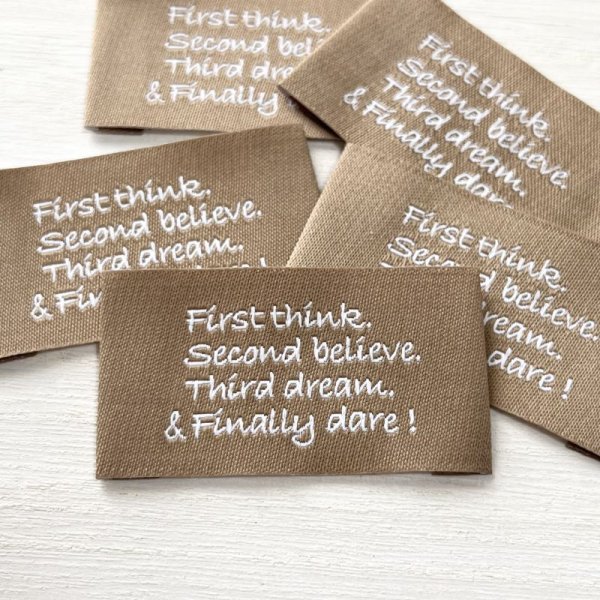 First think.
Second believe.
Third dre
& Finally da
First think.
Second believe.
Third dream.
& Finally dare
First think.
Second believe.
Third dream.
& Fin
!
First think.
d believe.
ream.
dare !
First think.
Second believe.
Third dream.
& Finally dare !